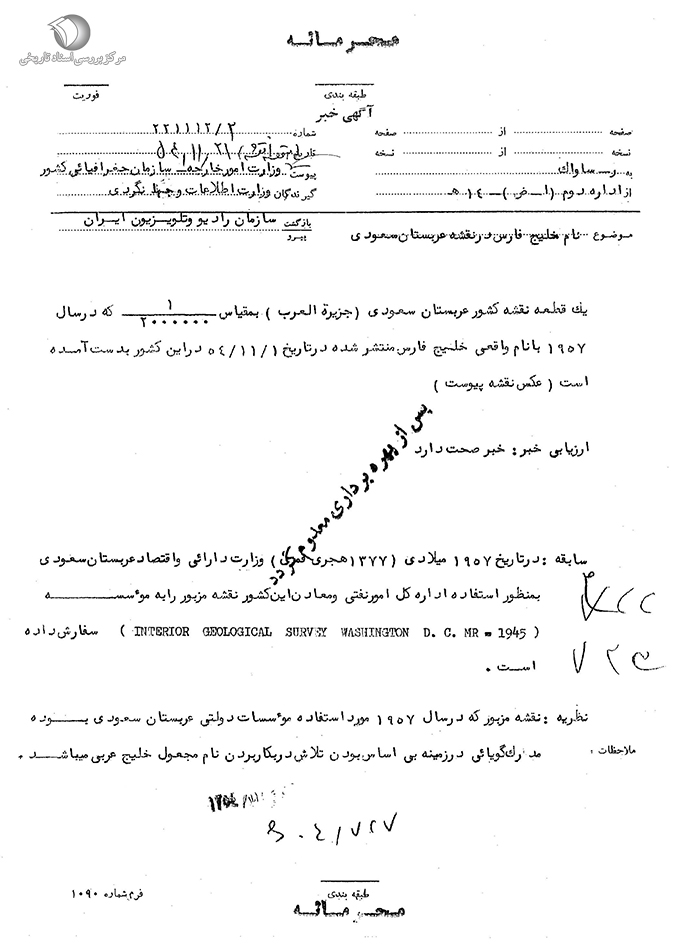 محرمانه
مرکز بررسی اسناد تاریخی
طبقه بندی
فوریت
آگهی خبر
صفحه از صفحه شماره ۲۲۱۱۱۲/۲
نسخه از نسخه تاریخ
به ر ساواک پیوست وزارت امور خارجه سازمان جغرافیائی کشور
از اداره دوم (ا ض) ۱۴۰ هـ گیرندگان وزارت اطلاعات و جهانگردی
بازگشت سازمان رادیو و تلویزیون ایران
پیرو
موضوع نام خلیج فارس در نقشه عربستان سعودی
یک قطعه نقشه کشور عربستان سعودی (جزیرة العرب) بمقیاس ۱/۲۰۰۰۰۰۰ که در سال
۱۹۵۷ با نام واقعی خلیج فارس منتشر شده در تاریخ ۵۴/۱۱/۱ در این کشور بدست آمده
است (عکس نقشه پیوست)
ارزیابی خبر : خبر صحت دارد
پس از بهره برداری معدوم گردد
سابقه : در تاریخ ۱۹۵۷ میلادی (۱۳۷۷ هجری قمری) وزارت دارائی و اقتصاد عربستان سعودی
بمنظور استفاده اداره کل امور نفتی و معادن این کشور نقشه مزبور را به موسسه
(INTERIOR GEOLOGICAL SURVEY WASHINGTON D. C. MR = 1945) سفارش داده
است .
نظریه : نقشه مزبور که در سال ۱۹۵۷ مورد استفاده مؤسسات دولتی عربستان سعودی بوده
ملاحظات : مدارک گویائی در زمینه بی اساس بودن تلاش در بکار بردن نام مجعول خلیج عربی میباشد .
طبقه بندی
محرمانه
فرم شماره ۱۰۹۰